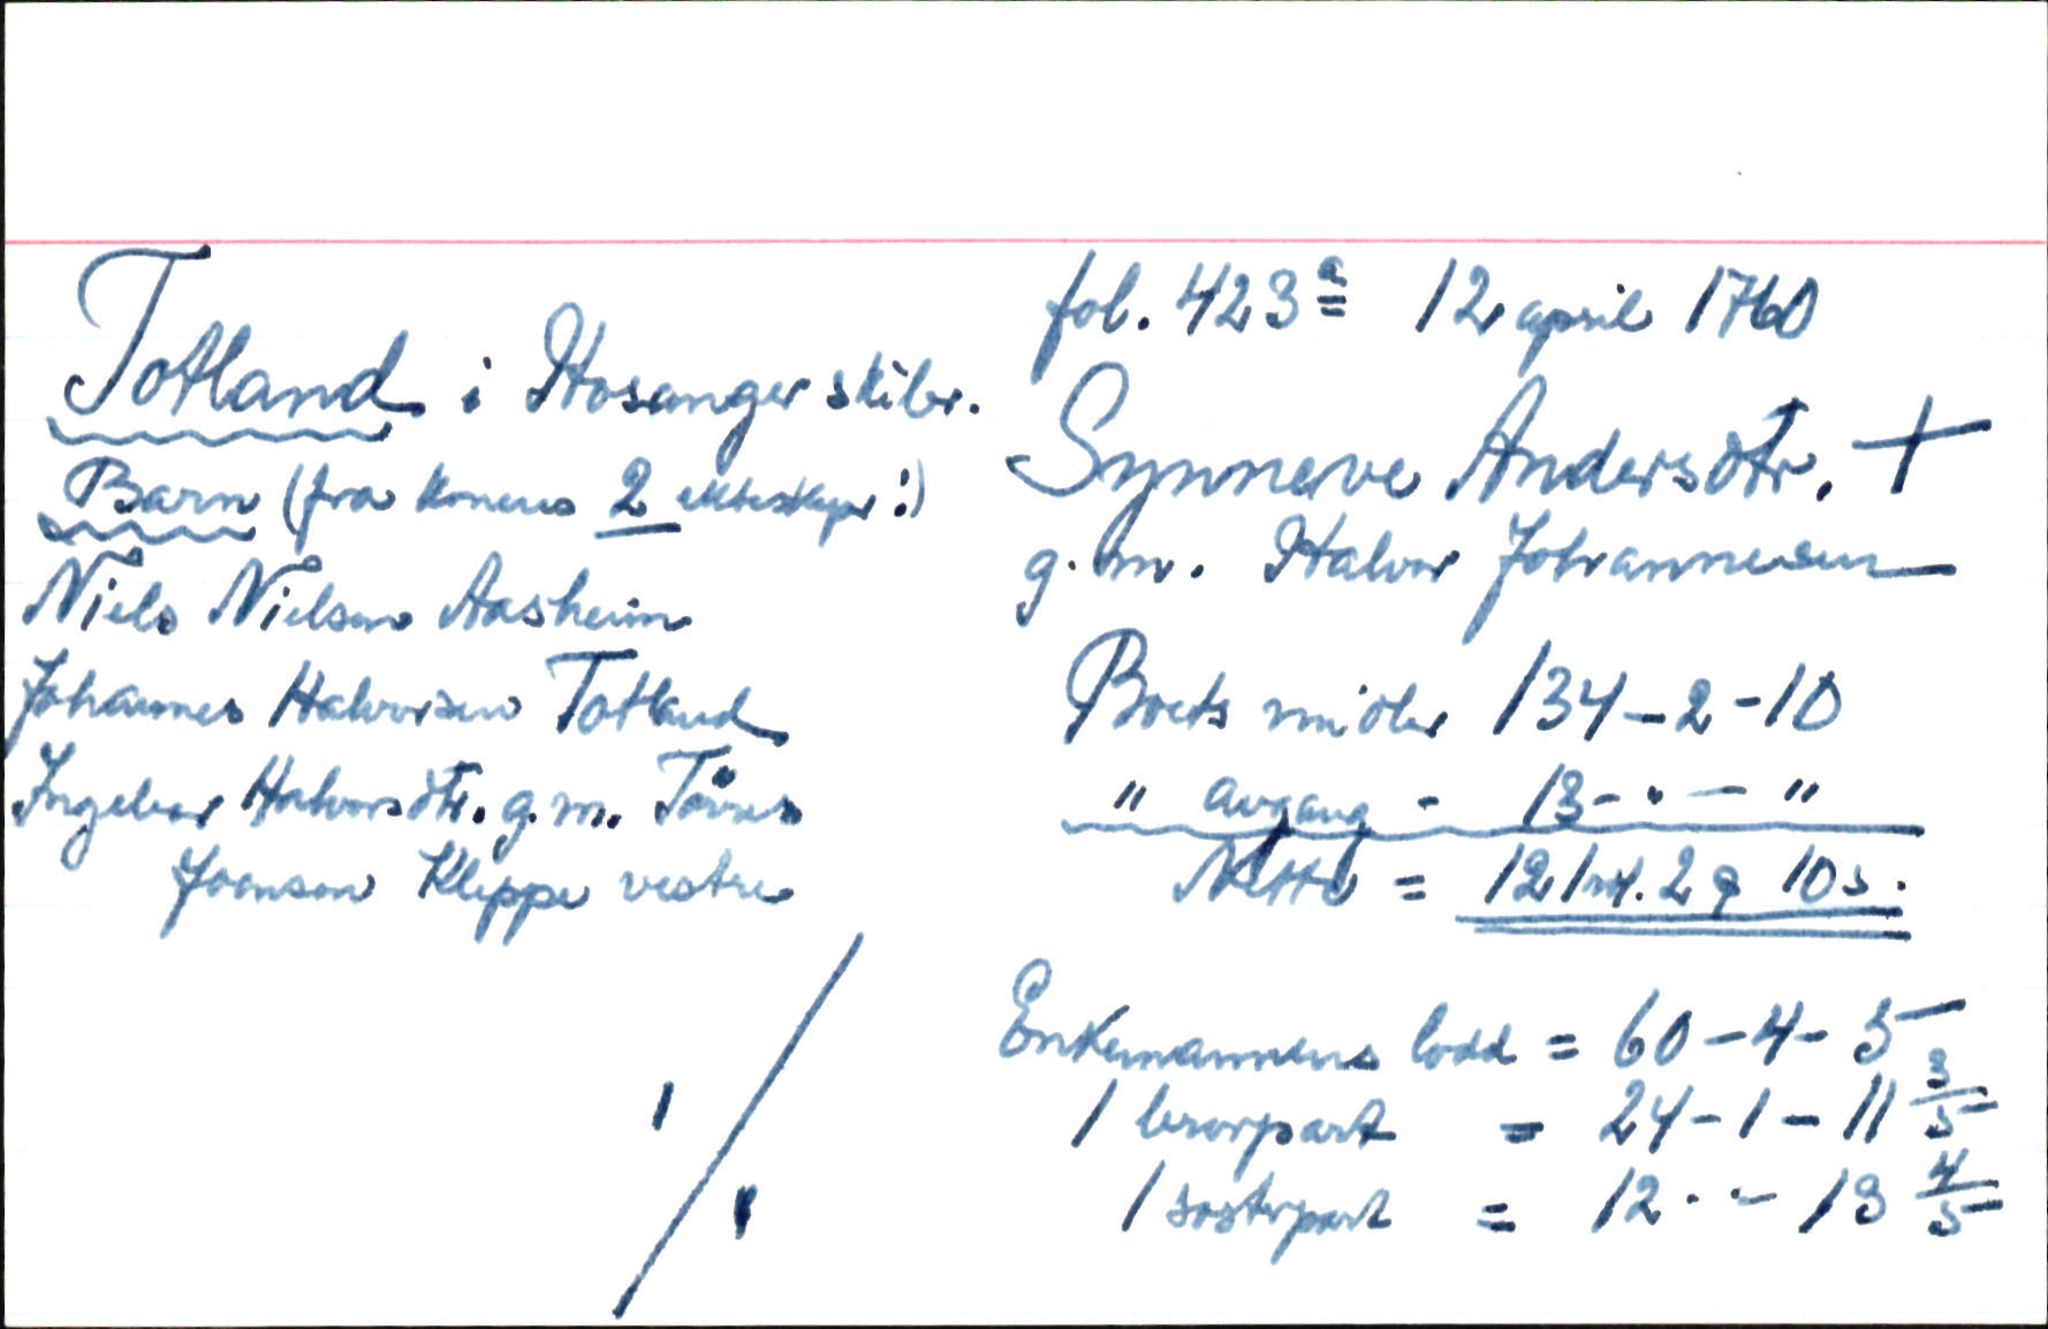 fol. 423a 12 april 1760
Totland i Hosanger skibr.
Synneve Andersdtr. +
g.m. Halvor Johannesen
Barn (fra konens 2 ekteskaper:)
Niels Nielsen Aasheim
Johannes Halvorsen Totland
Ingebor Halvorsdtr. g.m.
Joensen Kleppe vestre
Boets midler 134-2-10
" avgang - 13-"-"
Netto = 121 rd. 2 ƍ 10 s.
Enkemannens lodd = 60-4-5
1 brorpart = 24-1-11 3/5
1 søsterpart = 12-"-13 4/5